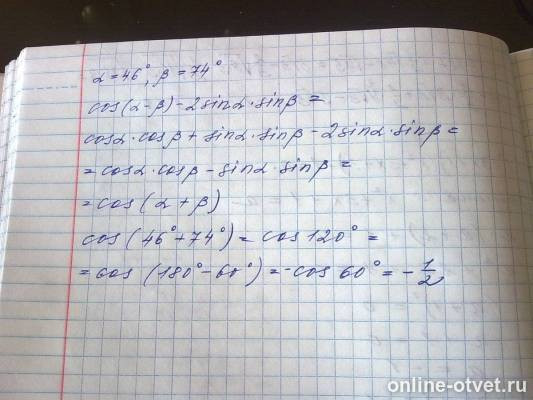 α=46°, β=74°
cos(α-β)-2sinα·sinβ=
cosα·cosβ+sinα·sinβ-2sinα·sinβ=
=cosα·cosβ-sinα·sinβ=
=cos(α+β)
cos(46°+74°)=cos120°=
=cos(180°-60°)=-cos60°=-1/2
online-otvet.ru